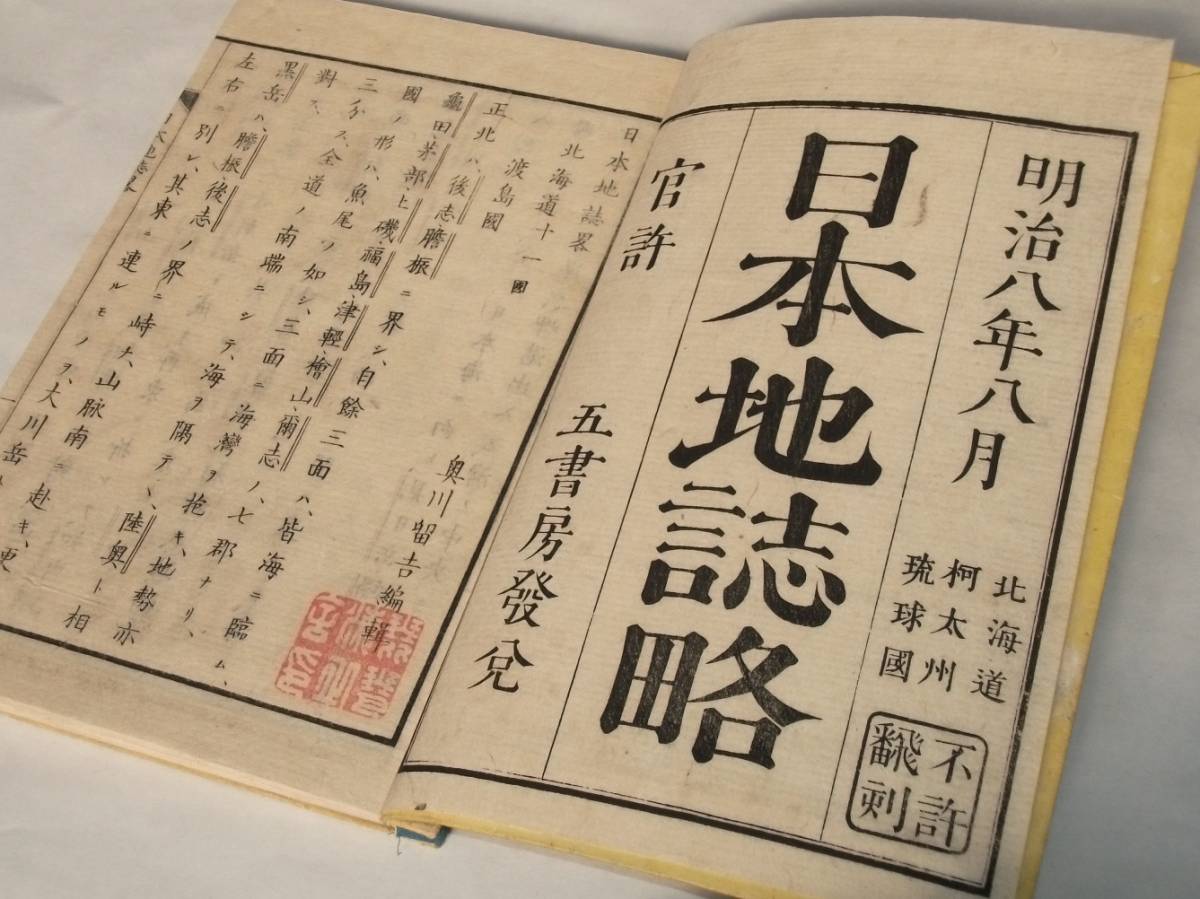 明治八年八月
北海道
柯太州
琉球國
不許
翻刻
日本地誌略
官許
五書房發兌
日本地誌畧
北海道十一國
奥川留吉編輯
渡島國
正北ハ、後志膽振ニ界シ、自餘三面ハ、皆海ニ臨ム、
國ノ形ハ、魚尾ノ如シ、三面ニ海灣ヲ抱キ、地勢亦
三分ス、全道ノ南端ニシテ、海ヲ隔テヽ、陸奥ト相
對ス、
龜田、茅部、上磯、福島、津輕、檜山、爾志ノ、七郡ナリ、
黒岳ハ、膽振、後志ノ界ニ峙チ、山脉南ニ赴キ、更
左右ニ別レ、其東ニ連ルモノヲ、大川岳ト